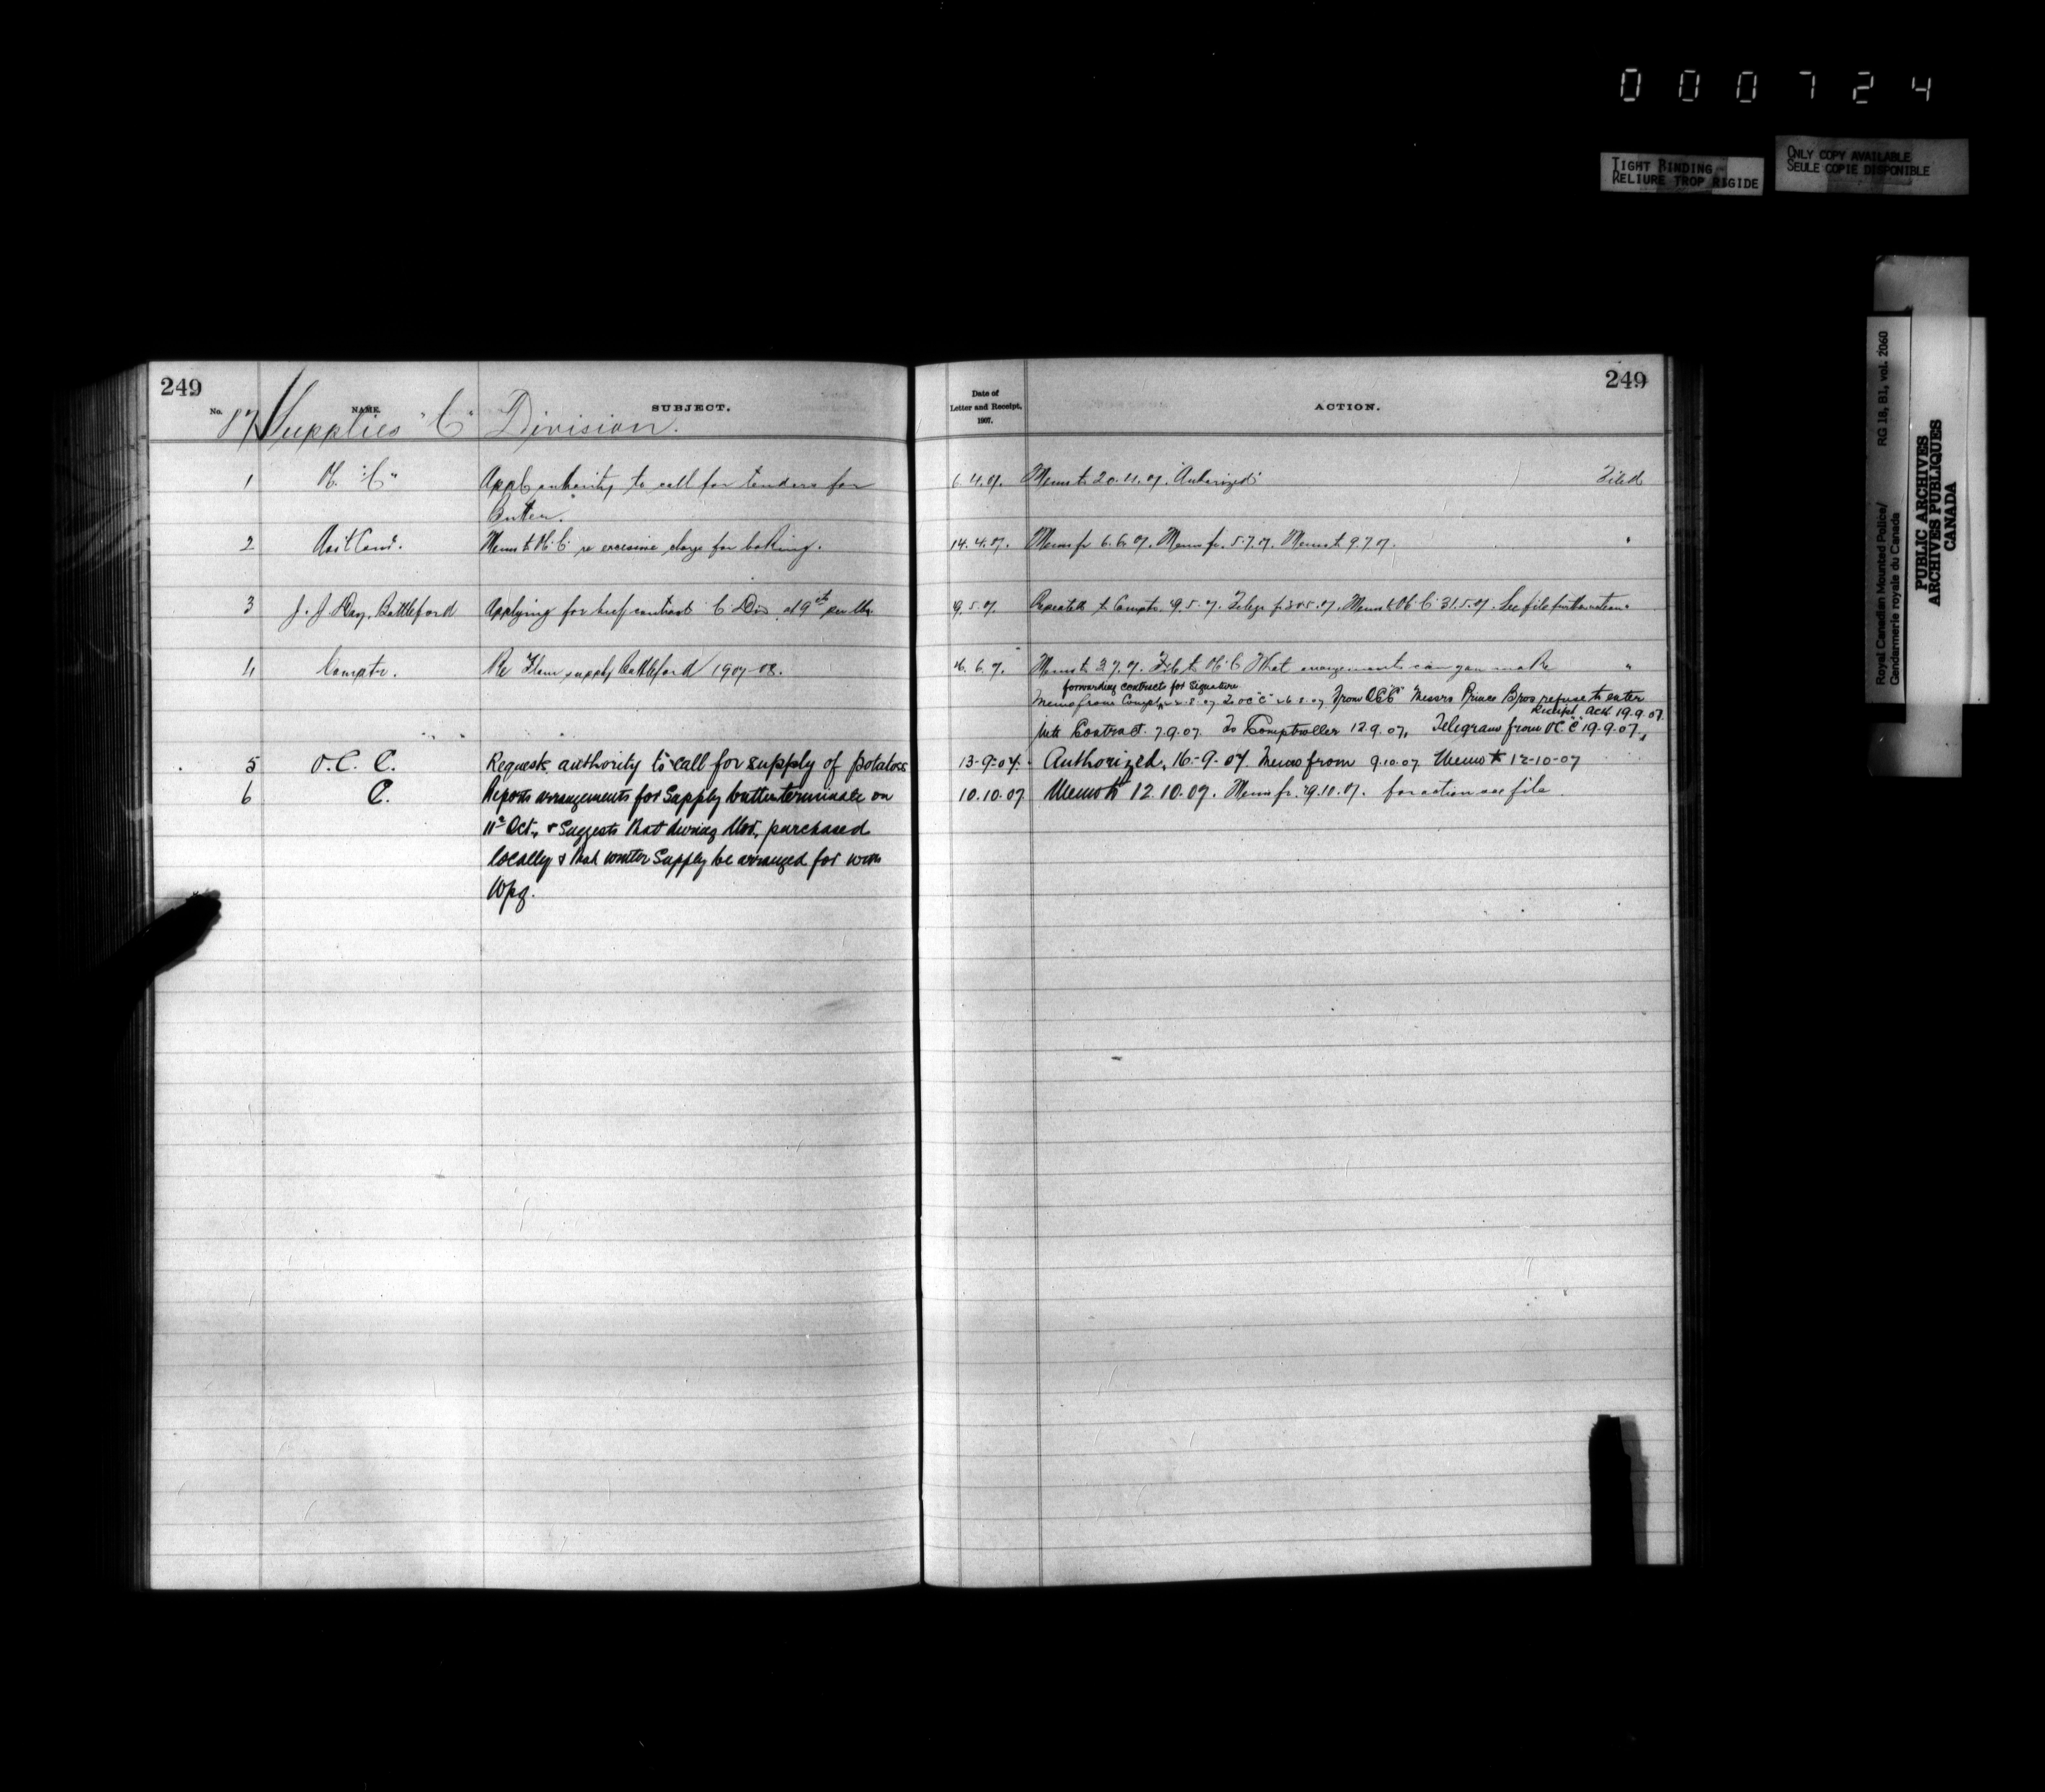 000724
TIGHT BINDING
RELIURE TROP RIGIDE
ONLY COPY AVAILABLE
SEULE COPIE DISPONIBLE
Royal Canadian Mounted Police/ RG 18, B1, vol. 2060
Gendarmerie royale du Canada
PUBLIC ARCHIVES
ARCHIVES PUBLIQUES
CANADA
249
No. NAME. SUBJECT.
87 Supplies "C" Division.
1 "C" Appl. authority to call for tenders for
Butter.
2 Asst Comr. Memo to re excessive charge for baking.
3 J. J. Day, Battleford Applying for beef contract C Div. at 9 cts per lb.
4 Comptr. Re Flour supply Battleford 1907-08.
5 O.C. C. Requests authority to call for supply of potatoes
6 C. Reports arrangements for Supply butter terminate on
11th Oct., & Suggests that during Nov. purchased
locally & that winter Supply be arranged for with
Wpg.
249
Date of
Letter and Receipt,
1907.
ACTION.
6.4.07. Memo to 20.4.07. "Authorized" Filed
14.4.07. Memo fr 6.6.07. Memo fr. 5.7.07. Memo to 9.7.07. "
9.5.07. to Comptr. 9.5.07. Telegr fr 30.5.07. Memo to 31.5.07. See file further action "
6.7. Memo to 3.7.07. What arrangements can you make "
forwarding contracts for Signature
Memo from Comptr 8.07 To OC "C" 8.07 From OC "C" Messrs Prince Bros refuse to enter
Receipt ack 19.9.07.
into Contract. 7.9.07. To Comptroller 12.9.07, Telegram from OC "C" 19.9.07,
13-9-07. Authorized, 16-9-07. Memo from 9.10.07 Memo to 12-10-07
10.10.07 Memo to 12.10.07. Memo fr. 29.10.07. for action see file.